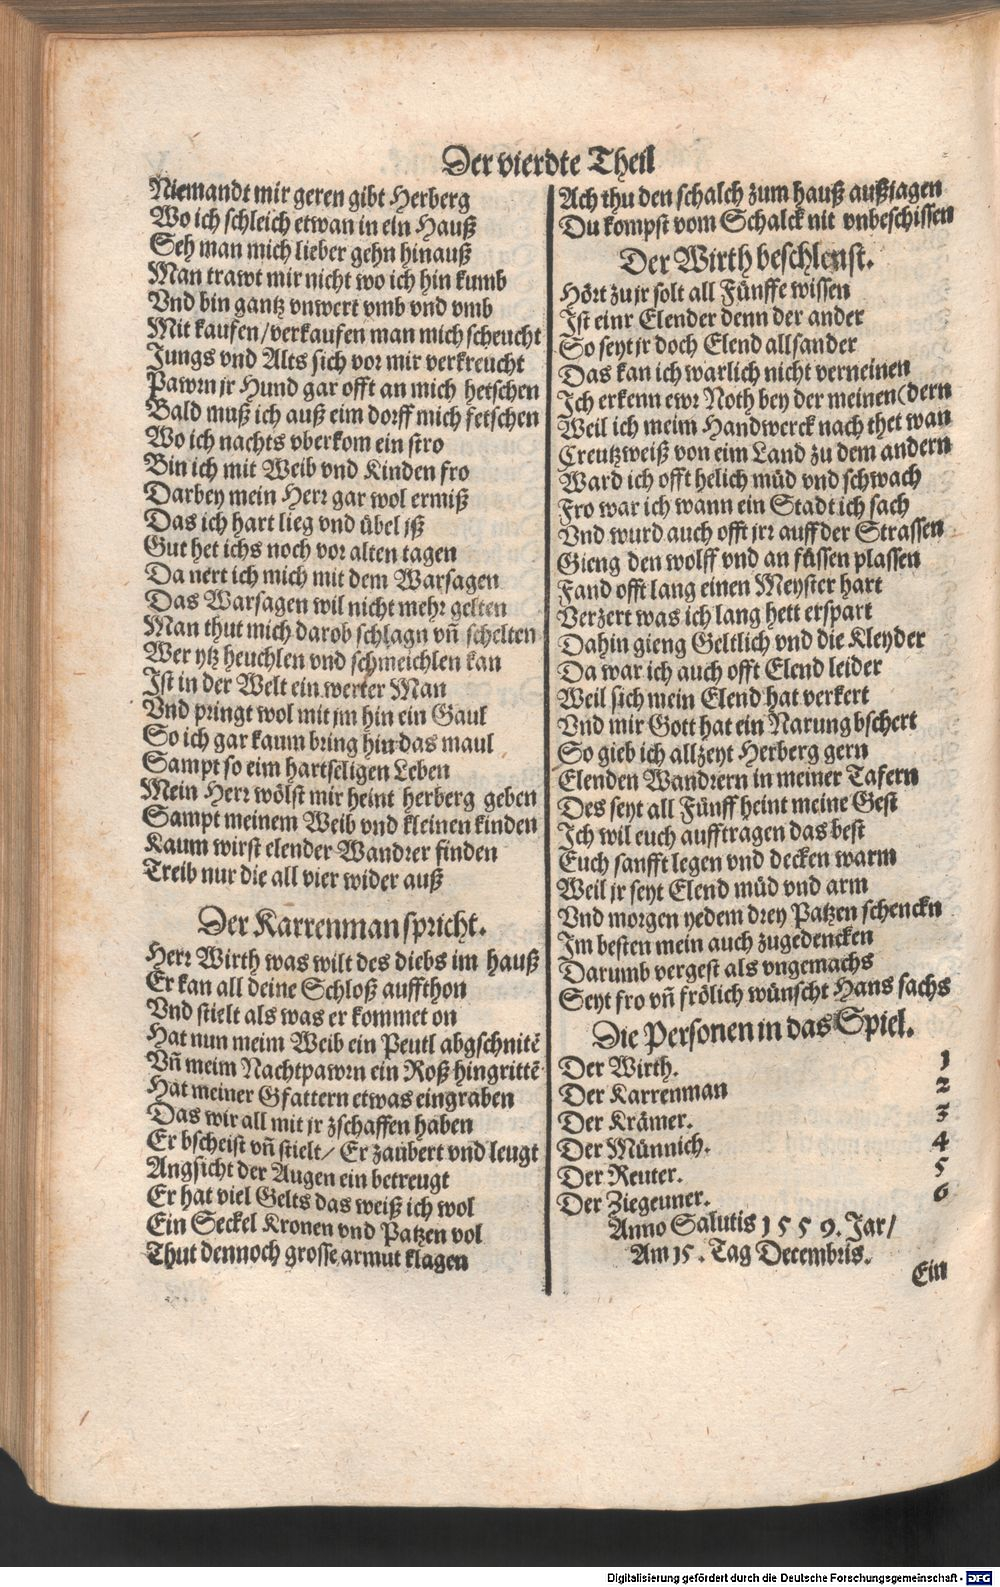 Der vierdte Theil
Niemandt mir geren gibt Herberg
Wo ich schleich etwan in ein Hauß
Seh man mich lieber gehn hinauß
Man trawt mir nicht wo ich hin kumb
Vnd bin gantz vnwert vmb vnd vmb
Mit kaufen/verkaufen man mich scheucht
Jungs vnd Alts sich vor mir verkreucht
Pawrn jr Hund gar offt an mich hetschen
Bald muß ich auß eim dorff mich fetschen
Wo ich nachts vberkom ein stro
Bin ich mit Weib vnd Kinden fro
Darbey mein Herr gar wol ermiß
Das ich hart lieg vnd übel jß
Gut het ichs noch vor alten tagen
Da nert ich mich mit dem Warsagen
Das Warsagen wil nicht mehr gelten
Man thut mich darob schlagn vñ schelten
Wer ytz heuchlen vnd schmeichlen kan
Jst in der Welt ein werter Man
Vnd pringt wol mit jm hin ein Gaul
So ich gar kaum bring hin das maul
Sampt so eim hartseligen Leben
Mein Herr wölst mir heint herberg geben
Sampt meinem Weib vnd kleinen kinden
Kaum wirst elender Wandrer finden
Treib nur die all vier wider auß
Der Karrenman spricht.
Herr Wirth was wilt des diebs im hauß
Er kan all deine Schloß auffthon
Vnd stielt als was er kommet on
Hat nun meim Weib ein Peutl abgschnitē
Vñ meim Nachtpawrn ein Roß hingrittē
Hat meiner Gfattern etwas eingraben
Das wir all mit jr zschaffen haben
Er bscheist vñ stielt/ Er zaubert vnd leugt
Angsicht der Augen ein betreugt
Er hat viel Gelts das weiß ich wol
Ein Seckel Kronen vnd Patzen vol
Thut dennoch grosse armut klagen
Ach thu den schalch zum hauß außjagen
Du kompst vom Schalck nit vnbeschissen
Der Wirth beschleust.
Hört zu jr solt all Fünffe wissen
Jst einr Elender denn der ander
So seyt jr doch Elend allsander
Das kan ich warlich nicht verneinen
Jch erkenn ewr Noth bey der meinen (dern
Weil ich meim Handwerck nach thet wan
Creutzweiß von eim Land zu dem andern
Ward ich offt helich müd vnd schwach
Fro war ich wann ein Stadt ich sach
Vnd wurd auch offt jrr auff der Strassen
Gieng den wolff vnd an füssen plassen
Fand offt lang einen Meyster hart
Verzert was ich lang hett erspart
Dahin gieng Geltlich vnd die Kleyder
Da war ich auch offt Elend leider
Weil sich mein Elend hat verkert
Vnd mir Gott hat ein Narung bschert
So gieb ich allzeyt Herberg gern
Elenden Wandrern in meiner Tafern
Des seyt all Fünff heint meine Gest
Jch wil euch aufftragen das best
Euch sanfft legen vnd decken warm
Weil jr seyt Elend müd vnd arm
Vnd morgen yedem drey Patzen schenckn
Jm besten mein auch zugedencken
Darumb vergest als vngemachs
Seyt fro vñ frölich wünscht Hans sachs
Die Personen in das Spiel.
Der Wirth. 1
Der Karrenman 2
Der Krämer. 3
Der Münnich. 4
Der Reuter. 5
Der Ziegeuner. 6
Anno Salutis 1559. Jar/
Am 15. Tag Decembris.
Ein
Digitalisierung gefördert durch die Deutsche Forschungsgemeinschaft - DFG